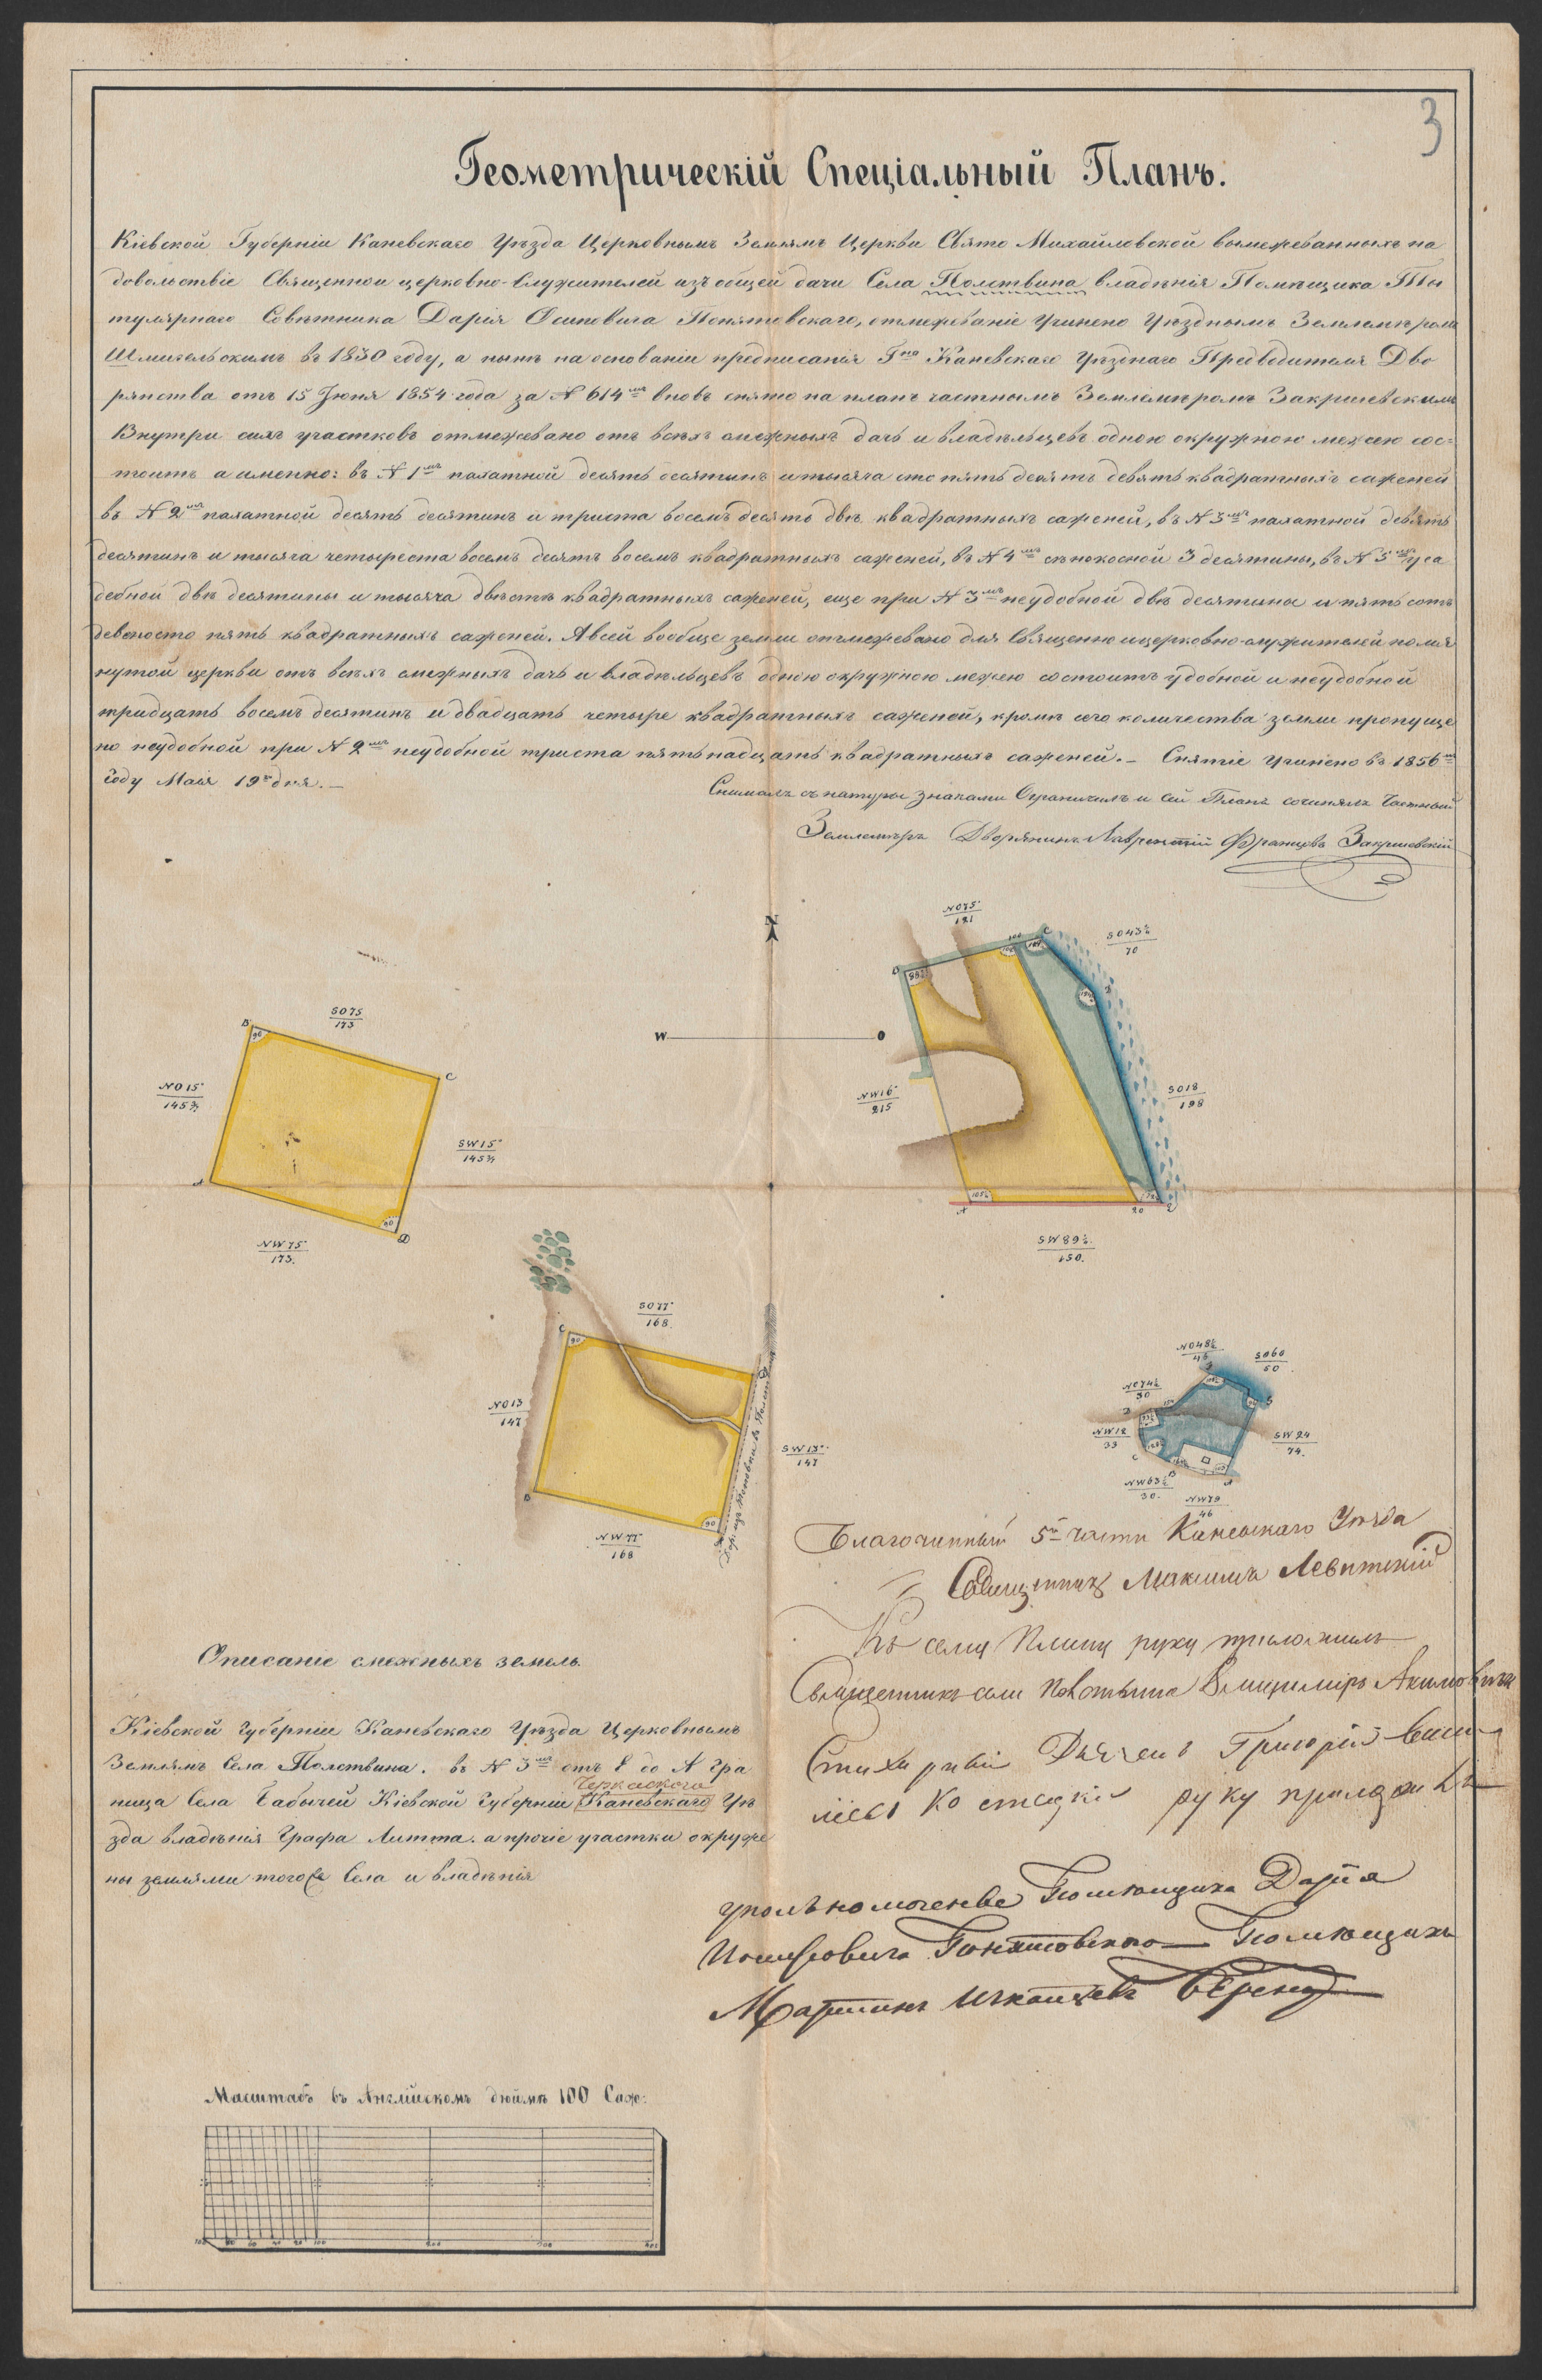 3
Геометрическій Спеціальный Планъ.
Кіевской Губерніи Каневскаго Уѣзда Церковнымъ Землямъ Церкви Свято Михайловской вымежеванныхъ на
довольствіе Священнои церковно-служителей изъ общей дачи Села Полствина владѣнія Помѣщика Ти
тулярнаго Совѣтника Дарія Осиповича Понятовскаго, отмежеваніе Учинено Уѣзднымъ Землемѣромъ
Шмигельскимъ въ 1830 году, а нынѣ на основаніи предписанія Гна Каневскаго Уѣзднаго Предводителя Дво
рянства отъ 15 Іюня 1854 года за N 614мъ вновь снято на планъ частнымъ Землемѣромъ Закришевскимъ
Внутри сихъ участковъ отмежевано отъ всѣхъ смежныхъ дачъ и владѣльцевъ одною окружною межею сос=
тоитъ а именно: въ N 1мъ пахатной десять десятинъ и тысяча сто пять десятъ девять квадратныхъ саженей
въ N 2мъ пахатной десять десятинъ и триста восемь десятъ двѣ квадратныхъ саженей, въ N 3мъ пахатной девять
десятинъ и тысяча четыреста восемь десятъ восемь квадратныхъ саженей, въ N 4мъ сѣнокосной 3 десятины, въ N 5мъ уса
дебной двѣ десятины и тысяча двѣстѣ квадратныхъ саженей, еще при N 3мъ неудобной двѣ десятины и пять сотъ
девяносто пять квадратныхъ саженей. А всей вообще земли отмежевано для Священно и церковно-служителей помя
нутой церкви отъ всѣхъ смежныхъ дачъ и владѣльцевъ одною окружною межею состоитъ удобной и неудобной
тридцать восемь десятинъ и двадцать четыре квадратныхъ саженей, кромѣ сего количества земли пропуще
но неудобной при N 2мъ неудобной триста пятьнадцать квадратныхъ саженей. – Снятіе Учинено въ 1856м
Году Маія 19го дня. –
Снималъ съ натуры знаками Ограничилъ и сей Планъ сочинялъ Частный
Землемѣръ Дворянинъ Лаврентій Францовъ Закришевскій
N
W O
NO75
121
SO43½
70
NW16
215
SO18
198
SW89½
150.
SO75
173
NO15
145¾
SW15
145¾
NW75
173.
SO77
168
NO13
147
SW13
147
NW77
168
NO48½
45
SO60
50
NO74½
30
NW12
33
SW24
74.
NW63½
30.
NW79
46
Благочинный 5й части Каневскаго Уѣзда
Священникъ Максимъ Левитскій
Къ сему Плану руку приложилъ
Священникъ села Полствина Владимиръ Акимовичъ
Стихарный Дьячекъ Григорій
руку приложилъ
уполномоченые Помющика Дарія
Иосифовича Понятовскаго Помющикъ
Мартинъ
Описаніе смежныхъ земель.
Кіевской Губерніи Каневскаго Уѣзда Церковнымъ
Землямъ Села Полствина. въ N 3мъ отъ E до A гра
Черкаского
ница Села Бабычей Кіевской Губерніи Каневскаго Уѣ
зда владѣнія Графа Литта. а прочіе участки окруже
ны землями того Села и владѣнія
Масштабъ въ Англійскомъ дюймѣ 100 Саж: